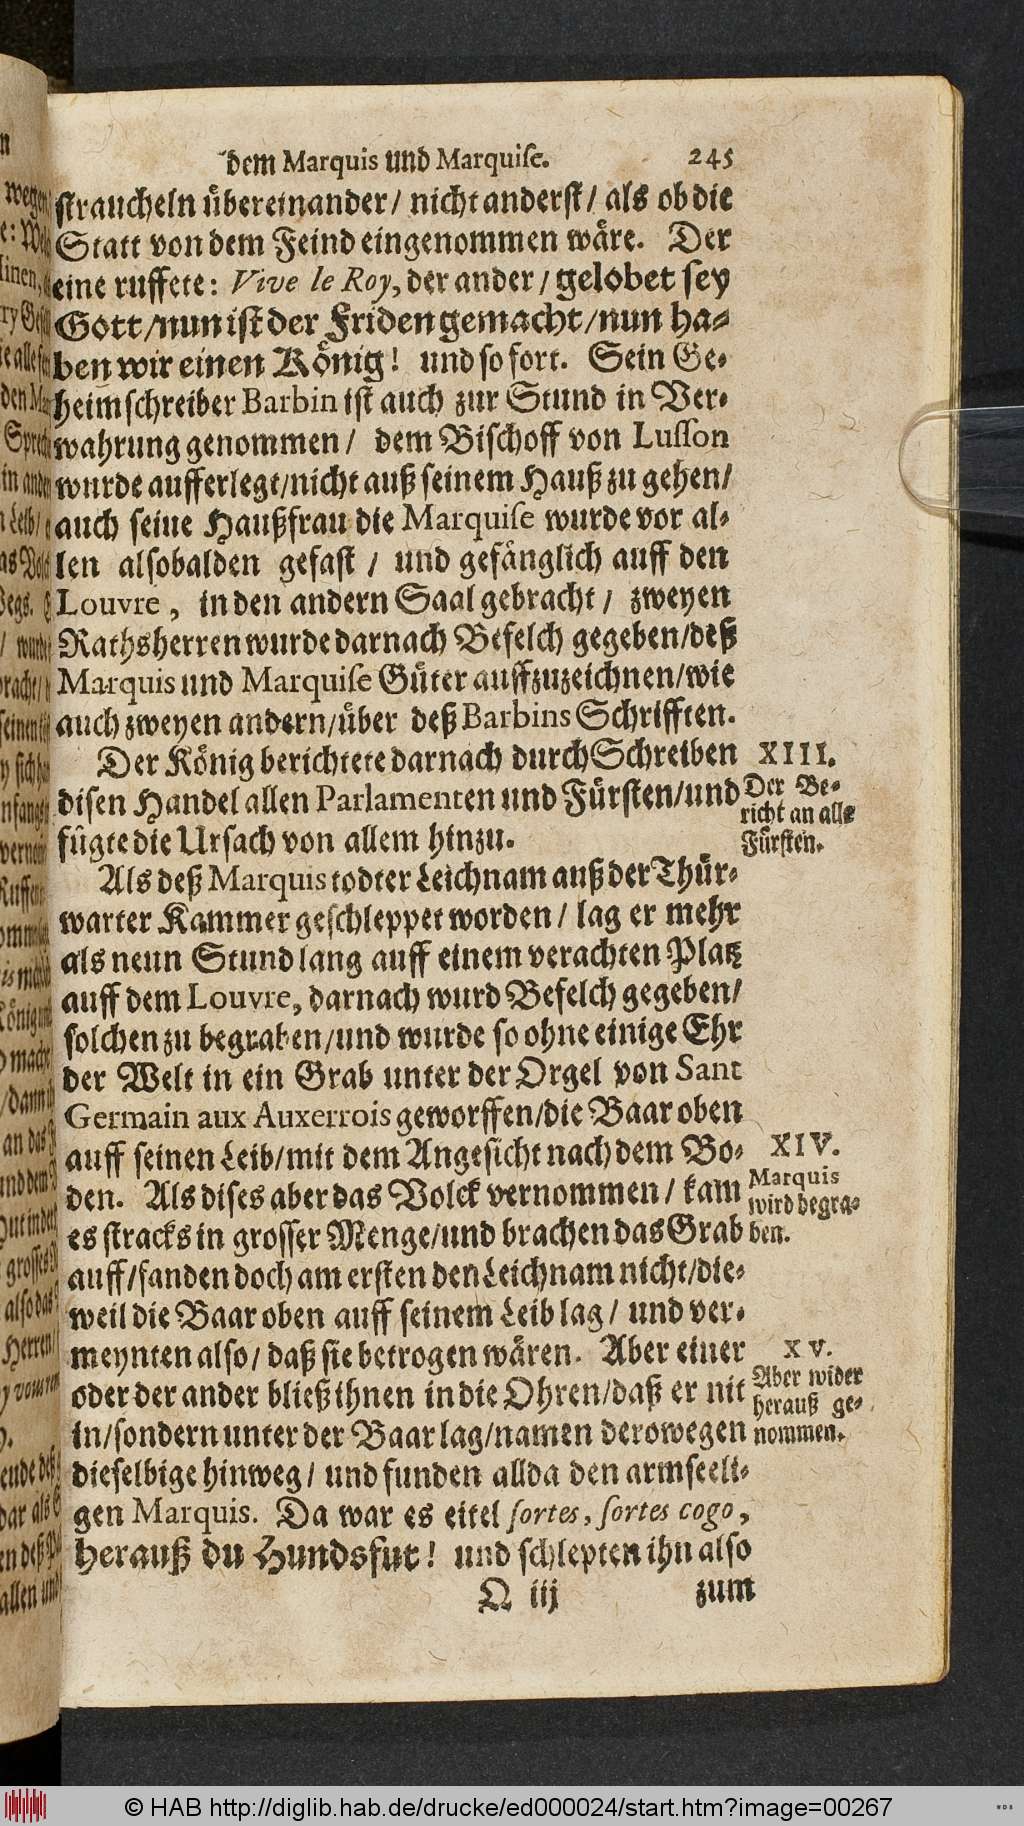 dem Marquis und Marquise. 245
straucheln übereinander/ nicht anderst/ als ob die
Statt von dem Feind eingenommen wäre. Der
eine ruffete: Vive le Roy, der ander/ gelobet sey
Gott/nun ist der Friden gemacht/nun ha-
ben wir einen König! und so fort. Sein Ge-
heimschreiber Barbin ist auch zur Stund in Ver-
wahrung genommen/ dem Bischoff von Lusson
wurde aufferlegt/nicht auß seinem Hauß zu gehen/
auch seine Haußfrau die Marquise wurde vor al-
len alsobalden gefast/ und gefänglich auff den
Louvre, in den andern Saal gebracht/ zweyen
Rathsherren wurde darnach Befelch gegeben/deß
Marquis und Marquise Güter auffzuzeichnen/wie
auch zweyen andern/über deß Barbins Schrifften.
Der König berichtete darnach durch Schreiben
disen Handel allen Parlamenten und Fürsten/und
fügte die Ursach von allem hinzu.
XIII.
Der Be-
richt an alle
Fürsten.
Als deß Marquis todter Leichnam auß der Thür-
warter Kammer geschleppet worden/ lag er mehr
als neun Stund lang auff einem verachten Platz
auff dem Louvre, darnach wurd Befelch gegeben/
solchen zu begraben/und wurde so ohne einige Ehr
der Welt in ein Grab unter der Orgel von Sant
Germain aux Auxerrois geworffen/die Baar oben
auff seinen Leib/mit dem Angesicht nach dem Bo-
den. Als dises aber das Volck vernommen/ kam
es stracks in grosser Menge/und brachen das Grab
auff/fanden doch am ersten den Leichnam nicht/die-
weil die Baar oben auff seinem Leib lag/ und ver-
meynten also/ daß sie betrogen wären. Aber einer
oder der ander bließ ihnen in die Ohren/daß er nit
in/sondern unter der Baar lag/namen derowegen
dieselbige hinweg/ und funden allda den armseeli-
gen Marquis. Da war es eitel sortes, sortes cogo,
herauß du Hundsfut! und schlepten ihn also
XIV.
Marquis
wird begra-
ben.
XV.
Aber wider
herauß ge-
nommen.
Q iij zum
© HAB http://diglib.hab.de/drucke/ed000024/start.htm?image=00267